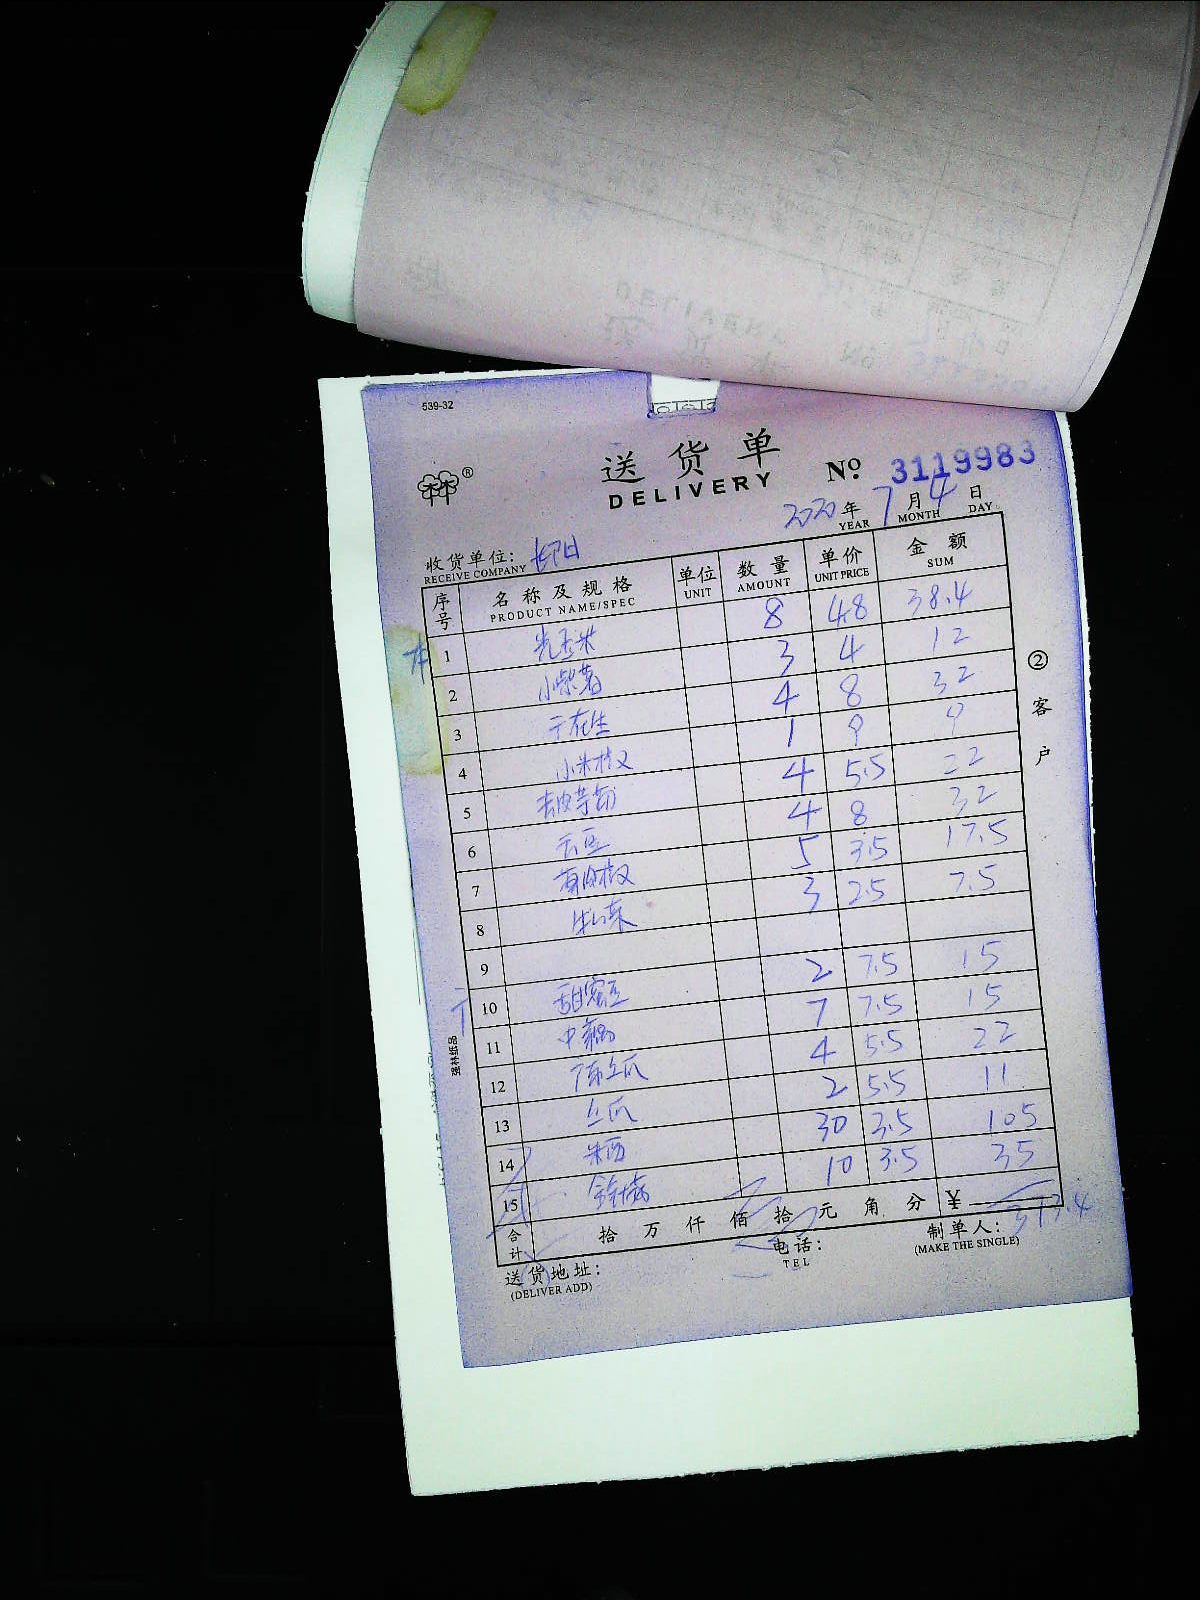 539-32
送货单
DELIVERY
№ 3119983
2020年7月4日
YEAR MONTH DAY
收货单位:
RECEIVE COMPANY
序号 名称及规格 单位 数量 单价 金额
PRODUCT NAME/SPEC UNIT AMOUNT UNIT PRICE SUM
1 光玉米 8 4.8 38.4
2 小紫薯 3 4 12
3 干花生 4 8 32
4 小米椒 1 9 9
5 去皮芋 4 5.5 22
6 云豆 4 8 32
7 椒 5 3.5 17.5
8 3 2.5 7.5
9
10 甜蜜豆 2 7.5 15
11 中藕 7 7.5 15
12 瓜 4 5.5 22
13 丝瓜 2 5.5 11
14 朱西 30 3.5 105
15 10 3.5 35
合计 拾万仟佰拾元角分 ¥ 373.4
送货地址:
(DELIVER ADD)
电话:
TEL
制单人:
(MAKE THE SINGLE)
②客户
强林纸品